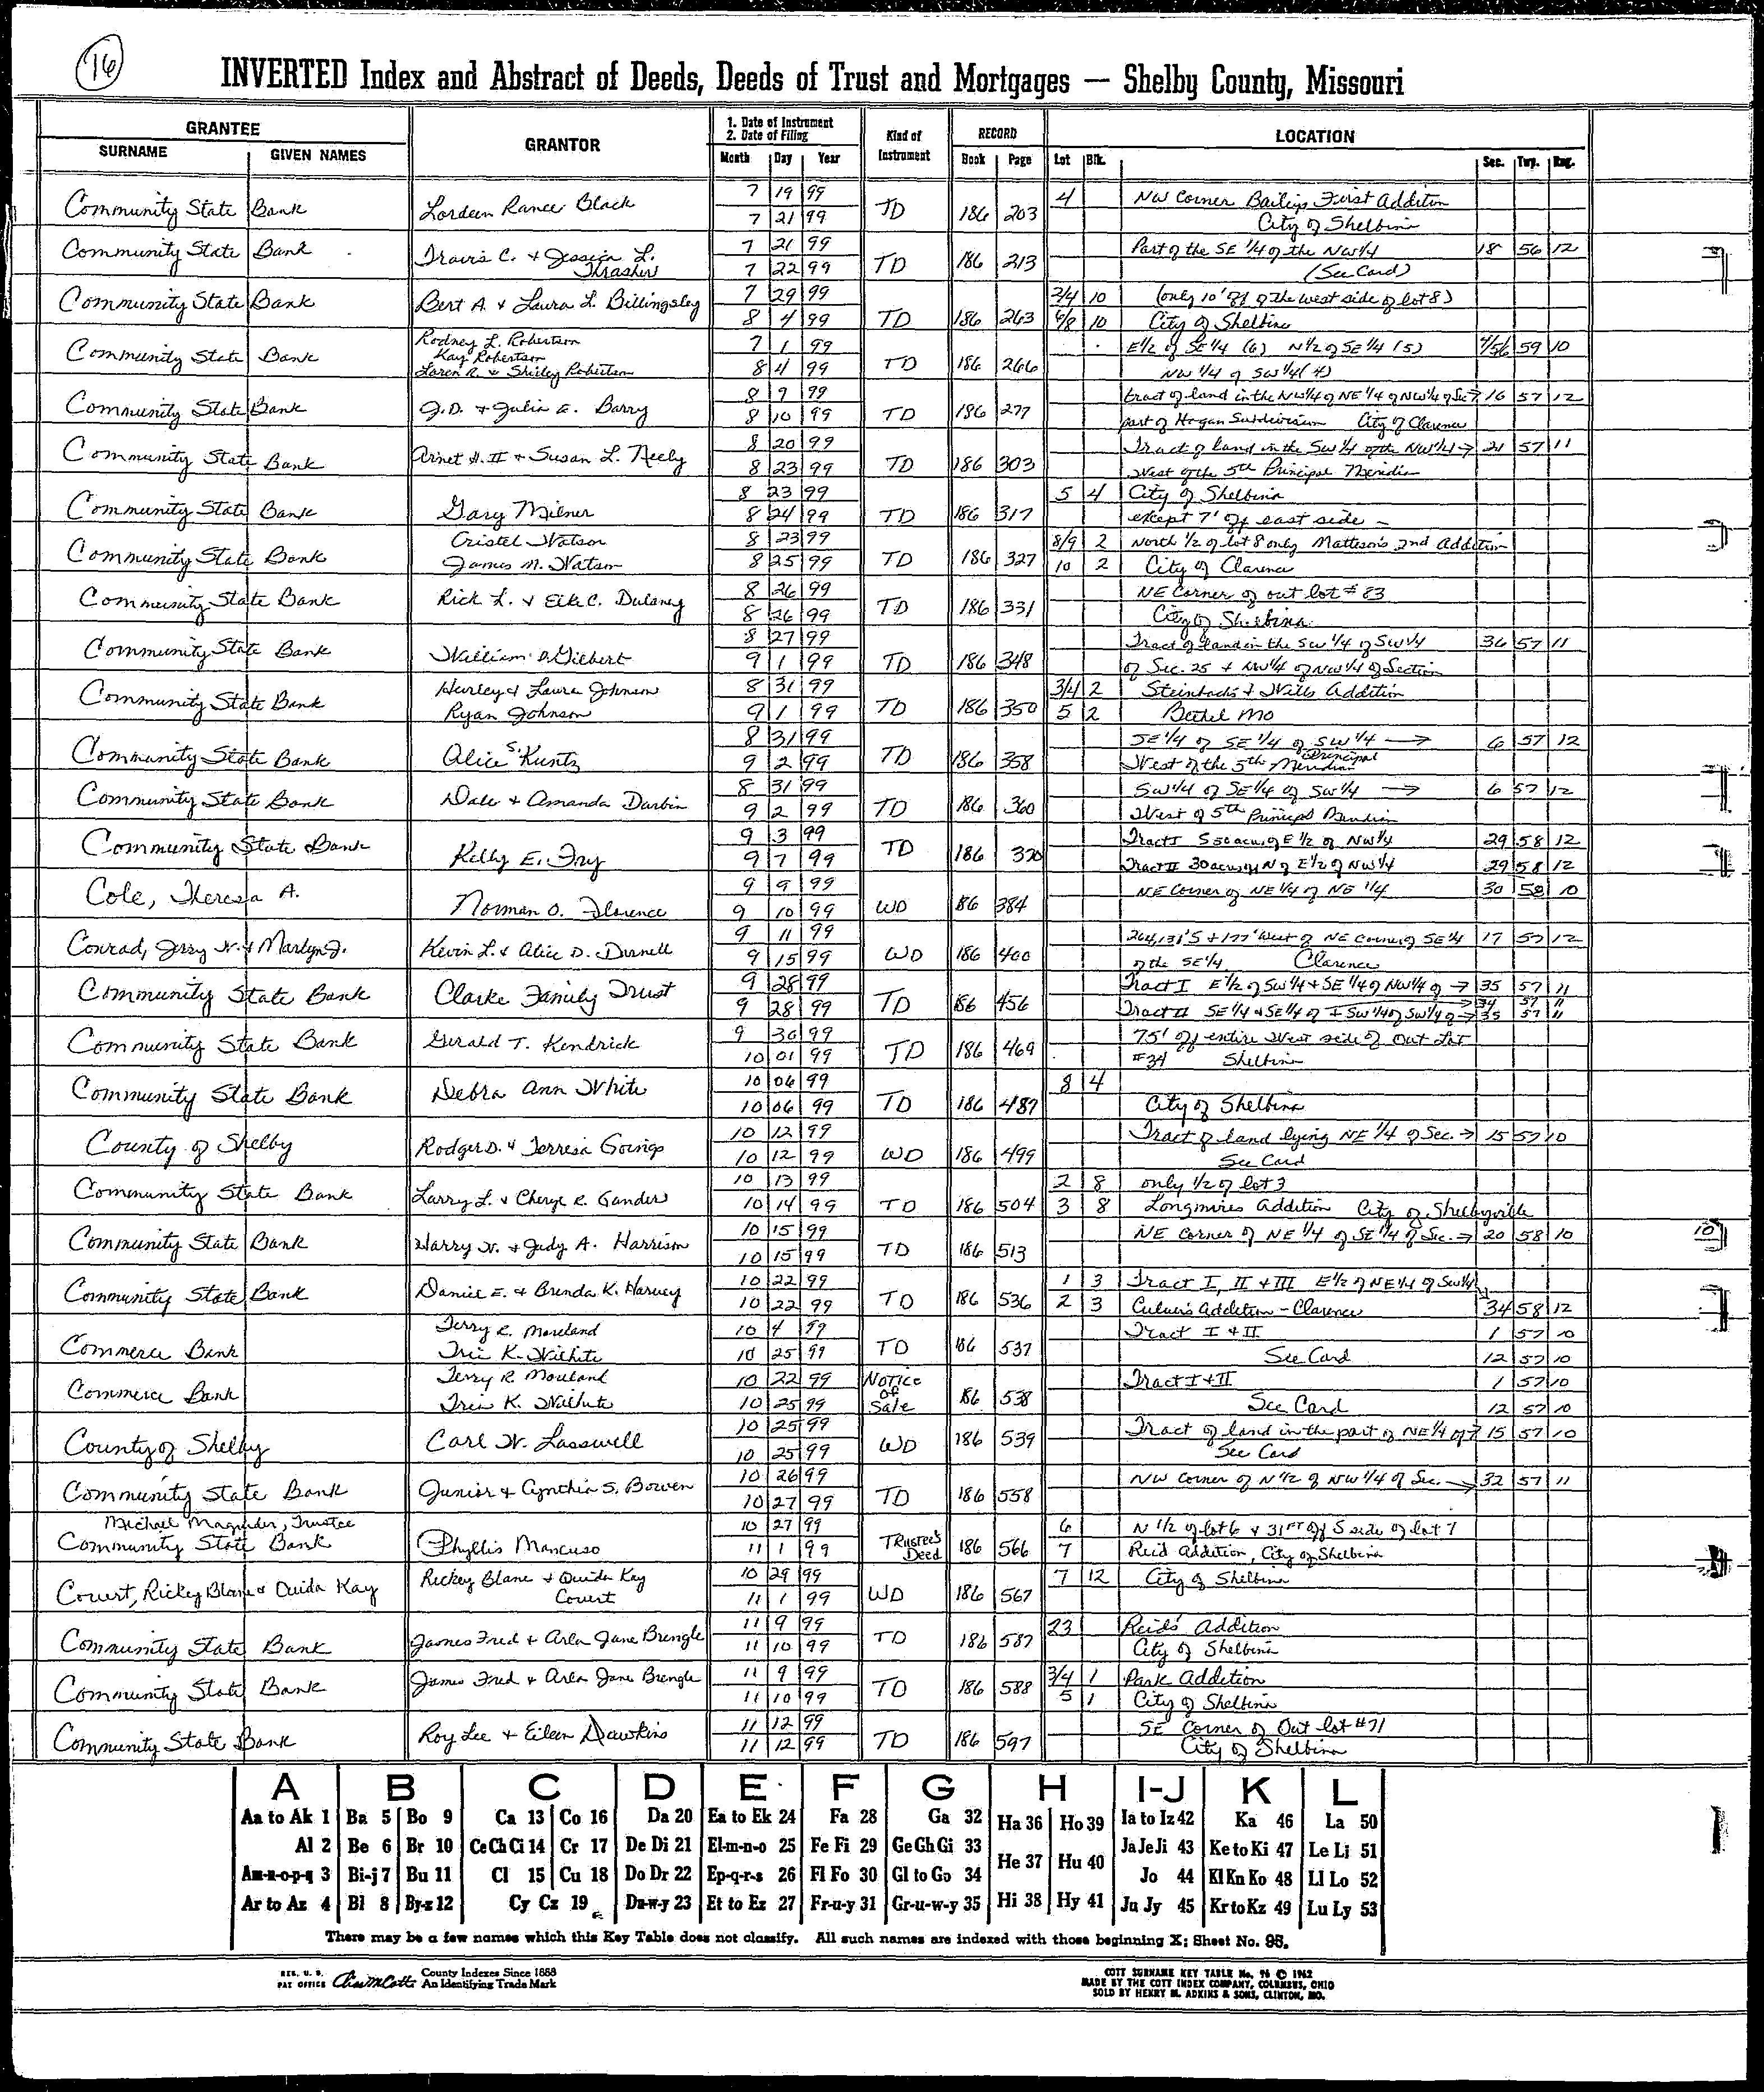 16
INVERTED Index and Abstract of Deeds, Deeds of Trust and Mortgages — Shelby County, Missouri
GRANTEE
SURNAME GIVEN NAMES
GRANTOR
1. Date of Instrument
2. Date of Filing
Month Day Year
Kind of Instrument
RECORD
Book Page
LOCATION
Lot Blk. Sec. Twp. Rng.
Community State Bank Lordeen Ranee Black 7 19 99 TD 186 203 4 NW Corner Baileys First Addition
7 21 99 City of Shelbina
Community State Bank Travis C. & Jessica L. Thrasher 7 21 99 TD 186 213 Part of the SE 1/4 of the NW 1/4 18 56 12
7 22 99 (See Card)
Community State Bank Bert A. & Laura L. Billingsley 7 29 99 TD 186 263 3/4 10 (only 10' off of the west side of lot 8)
8 4 99 6/8 10 City of Shelbina
Community State Bank Rodney L. Robertson 7 1 99 TD 186 266 E1/2 of SE 1/4 (6) N1/2 of SE 1/4 (5) 59 10
Kay Robertson
Loren R. & Shirley Robertson 8 4 99 NW 1/4 of SW 1/4 (4)
Community State Bank J.D. & Julia E. Barry 8 9 99 TD 186 277 tract of land in the NW1/4 of NE 1/4 of NW1/4 of Sec → 16 57 12
8 10 99 part of Hogan Subdivision City of Clarence
Community State Bank Arnet H. II & Susan L. Neely 8 20 99 TD 186 303 Tract of land in the SW 1/4 of the NW1/4 → 21 57 11
8 23 99 West of the 5th Principal Meridian
Community State Bank Gary Milner 8 23 99 TD 186 317 5 4 City of Shelbina
8 24 99 except 7' off east side —
Community State Bank Cristel Watson 8 23 99 TD 186 327 8/9 2 North 1/2 of lot 8 only Matteson's 2nd Addition
James M. Watson 8 25 99 10 2 City of Clarence
Community State Bank Rick L. & Eike C. Dulaney 8 26 99 TD 186 331 NE Corner of out lot # 83
8 26 99 City of Shelbina
Community State Bank William D. Gilbert 8 27 99 TD 186 348 Tract of land in the SW 1/4 of SW1/4 36 57 11
9 1 99 of Sec. 25 & NW1/4 of NW 1/4 of Section
Community State Bank Hurley & Laura Johnson 8 31 99 TD 186 350 3/4 2 Steinbachs & Wills Addition
Ryan Johnson 9 1 99 5 2 Bethel Mo
Community State Bank Alice S. Kuntz 8 31 99 TD 186 358 SE 1/4 of SE 1/4 of SW 1/4 → 6 57 12
9 2 99 West of the 5th Principal Meridian
Community State Bank Dale & Amanda Durbin 8 31 99 TD 186 360 SW1/4 of SE 1/4 of SW 1/4 → 6 57 12
9 2 99 West of 5th Principal Meridian
Community State Bank Kelly E. Fry 9 3 99 TD 186 370 Tract I S 50 acres of E 1/2 of NW 1/4 29 58 12
9 7 99 Tract II 30 acres N of E 1/2 of NW 1/4 29 58 12
Cole, Theresa A. Norman O. Florence 9 9 99 WD 186 384 NE Corner of NE 1/4 of NE 1/4 30 58 10
9 10 99
Conrad, Jerry W. & Marlyn J. Kevin L. & Alice D. Darnell 9 11 99 WD 186 400 264,131' S + 177' West of NE Corner of SE 1/4 17 57 12
9 15 99 of the SE 1/4 Clarence
Community State Bank Clarke Family Trust 9 28 99 TD 186 456 Tract I E 1/2 of SW 1/4 + SE 1/4 of NW 1/4 of → 35 57 11
34 57 11
9 28 99 Tract II SE 1/4 of SE 1/4 of + SW 1/4 of SW 1/4 of → 35 57 11
Community State Bank Gerald T. Kendrick 9 30 99 TD 186 469 75' off entire West side of Out Lot
10 01 99 #34 Shelbina
Community State Bank Debra Ann White 10 06 99 TD 186 487 8 4
10 06 99 City of Shelbina
County of Shelby Rodger D. & Terresa Goings 10 12 99 WD 186 499 Tract of land lying NE 1/4 of Sec. → 15 57 10
10 12 99 See Card
Community State Bank Larry L. & Cheryl R. Gander 10 13 99 TD 186 504 2 8 only 1/2 of lot 3
10 14 99 3 8 Longmires Addition City of Shelbyville
Community State Bank Harry W. & Judy A. Harrison 10 15 99 TD 186 513 NE Corner of NE 1/4 of SE 1/4 of Sec. → 20 58 10
10 15 99
Community State Bank Daniel E. & Brenda K. Harvey 10 22 99 TD 186 536 1 3 Tract I, II & III E1/2 of NE 1/4 of SW 1/4
10 22 99 2 3 Culver's Addition - Clarence 34 58 12
Commerce Bank Terry R. Moreland 10 4 99 TD 186 537 Tract I & II 1 57 10
Tric K. Wilhite 10 25 99 See Card 12 57 10
Commerce Bank Terry R. Moreland 10 22 99 Notice of Sale 186 538 Tract I & II 1 57 10
Tric K. Wilhite 10 25 99 See Card 12 57 10
County of Shelby Carl W. Lasswell 10 25 99 WD 186 539 Tract of land in the part of NE 1/4 of → 15 57 10
10 25 99 See Card
Community State Bank Junior & Cynthia S. Bowen 10 26 99 TD 186 558 NW Corner of N 1/2 of NW 1/4 of Sec. → 32 57 11
10 27 99
Michael Magruder, Trustee 10 27 99 6 N 1/2 of lot 6 & 31 FT off S side of lot 7
Community State Bank Phyllis Mancuso 11 1 99 Trustee's Deed 186 566 7 Reid Addition, City of Shelbina
Couert, Rickey Blane & Ouida Kay Rickey Blane & Ouida Kay Couert 10 29 99 WD 186 567 7 12 City of Shelbina
11 1 99
Community State Bank James Fred & Arla Jane Brengle 11 9 99 TD 186 587 23 Reid's Addition
11 10 99 City of Shelbina
Community State Bank James Fred & Arla Jane Brengle 11 9 99 TD 186 588 3/4 1 Park Addition
11 10 99 5 1 City of Shelbina
Community State Bank Roy Lee & Eileen Dawkins 11 12 99 TD 186 597 SE Corner of Out lot #71
11 12 99 City of Shelbina
A B C D E F G H I-J K L
Aa to Ak 1 Ba 5 Bo 9 Ca 13 Co 16 Da 20 Ea to Ek 24 Fa 28 Ga 32 Ha 36 Ho 39 Ia to Iz 42 Ka 46 La 50
Al 2 Be 6 Br 10 Ce Ch Ci 14 Cr 17 De Di 21 El-m-n-o 25 Fe Fi 29 Ge Gh Gi 33 He 37 Hu 40 Ja Je Ji 43 Ke to Ki 47 Le Li 51
Am-n-o-p-q 3 Bi-j 7 Bu 11 Cl 15 Cu 18 Do Dr 22 Ep-q-r-s 26 Fl Fo 30 Gl to Go 34 Jo 44 Kl Kn Ko 48 Ll Lo 52
Ar to Az 4 Bl 8 By-z 12 Cy Cz 19 Du-w-y 23 Et to Ez 27 Fr-u-y 31 Gr-u-w-y 35 Hi 38 Hy 41 Ju Jy 45 Kr to Kz 49 Lu Ly 53
There may be a few names which this Key Table does not classify. All such names are indexed with those beginning X; Sheet No. 95.
REG. U. S. PAT OFFICE County Indexes Since 1888 An Identifying Trade Mark
COTT SURNAME KEY TABLE No. 96 © 1962
MADE BY THE COTT INDEX COMPANY, COLUMBUS, OHIO
SOLD BY HENRY M. ADKINS & SONS, CLINTON, MO.